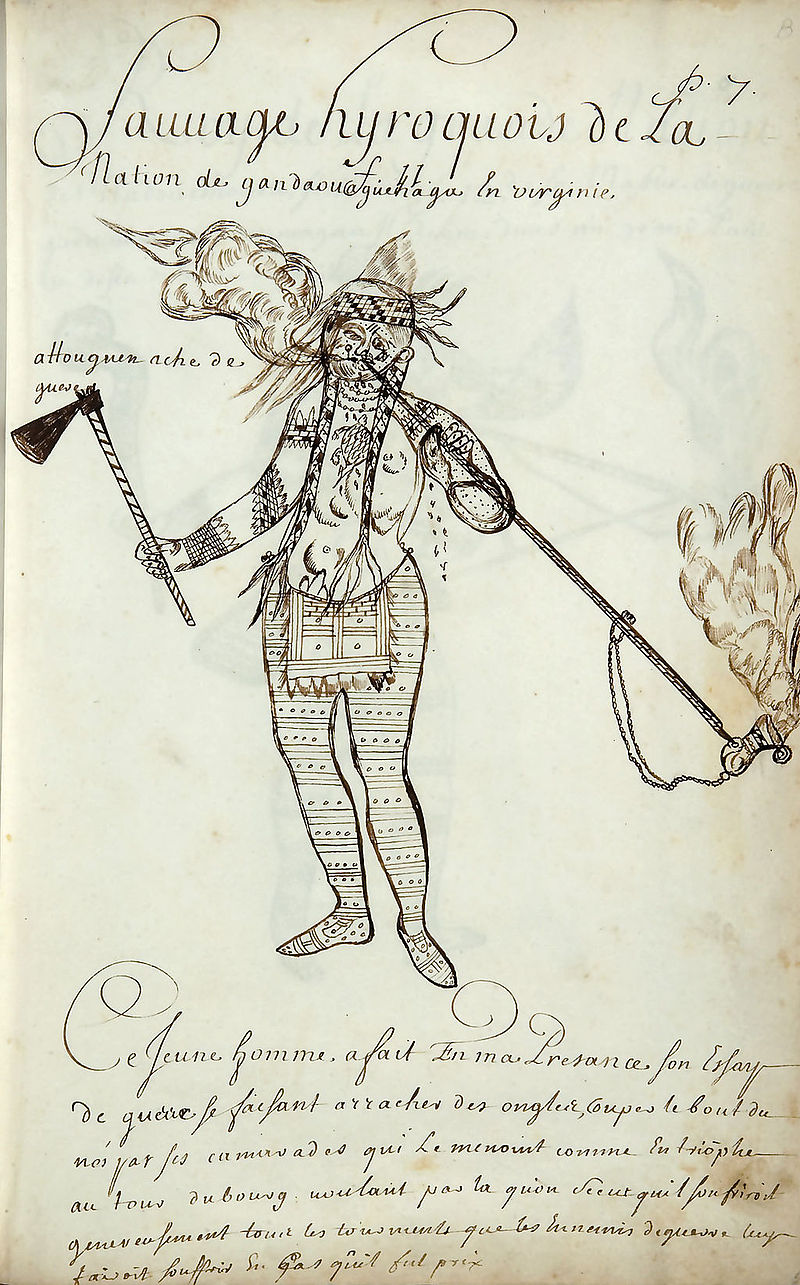 p. 7.
Sauuage hyroquois de La
Nation de gandaouaguehaga En virginie.
attouguen ache de
guere
Ce Jeune homme. a fait En ma Presance son Essay
de guerre se faisant arracher des ongles, Couper le bout du
nés par ses camarades qui Le menoint comme En triõphe
au tour du bourg. uoulant par la quon sceut quil soufriroit
genereusement tous les tourments que les Ennemis de guerre luy
fairoit souffrir En Cas quil fut prix